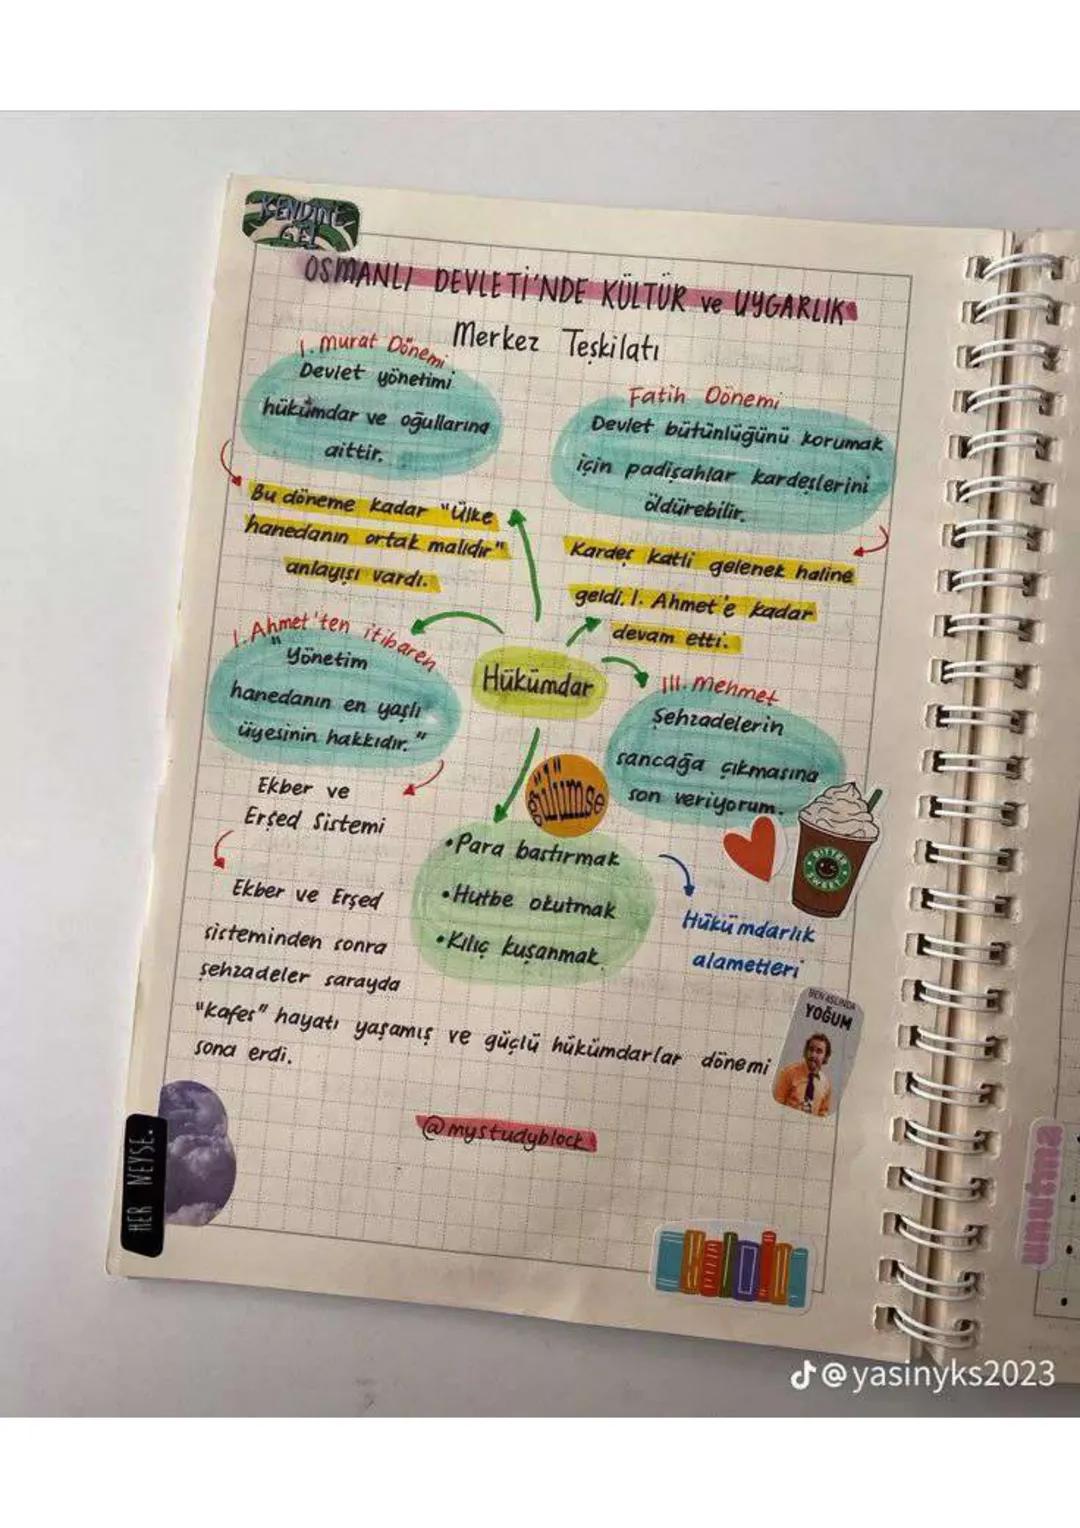 KENDİNE
GEL
OSMANLI DEVLETİ'NDE KÜLTÜR ve UYGARLIK
Merkez Teşkilatı
I. Murat Dönemi
Devlet yönetimi
hükümdar ve oğullarına
aittir.
Bu döneme kadar "Ülke
hanedanın ortak malıdır"
anlayışı vardı.
Fatih Dönemi
Devlet bütünlüğünü korumak
için padişahlar kardeşlerini
öldürebilir.
Kardeş katli gelenek haline
geldi. I. Ahmet'e kadar
devam etti.
I. Ahmet'ten itibaren
"Yönetim
hanedanın en yaşlı
üyesinin hakkıdır."
Ekber ve
Erşed Sistemi
Ekber ve Erşed
sisteminden sonra
şehzadeler sarayda
"Kafes" hayatı yaşamış ve güçlü hükümdarlar dönemi
sona erdi.
Hükümdar
III. Mehmet
Şehzadelerin
sancağa çıkmasına
son veriyorum.
gülümse
•Para bastırmak
•Hutbe okutmak
•Kılıç kuşanmak
Hükümdarlık
alametleri
BITTER
SWEET
BEN ASLINDA
YOĞUM
@mystudyblock
HER NEYSE.
unutma
@yasinyks2023